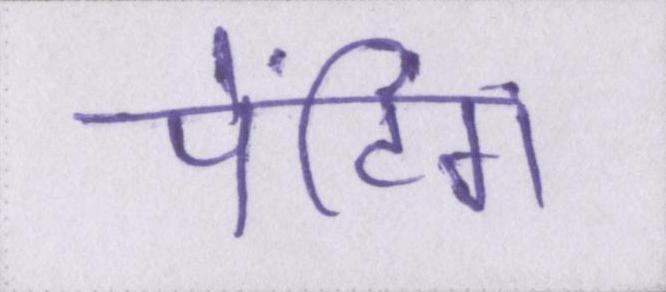 पेंटिंग